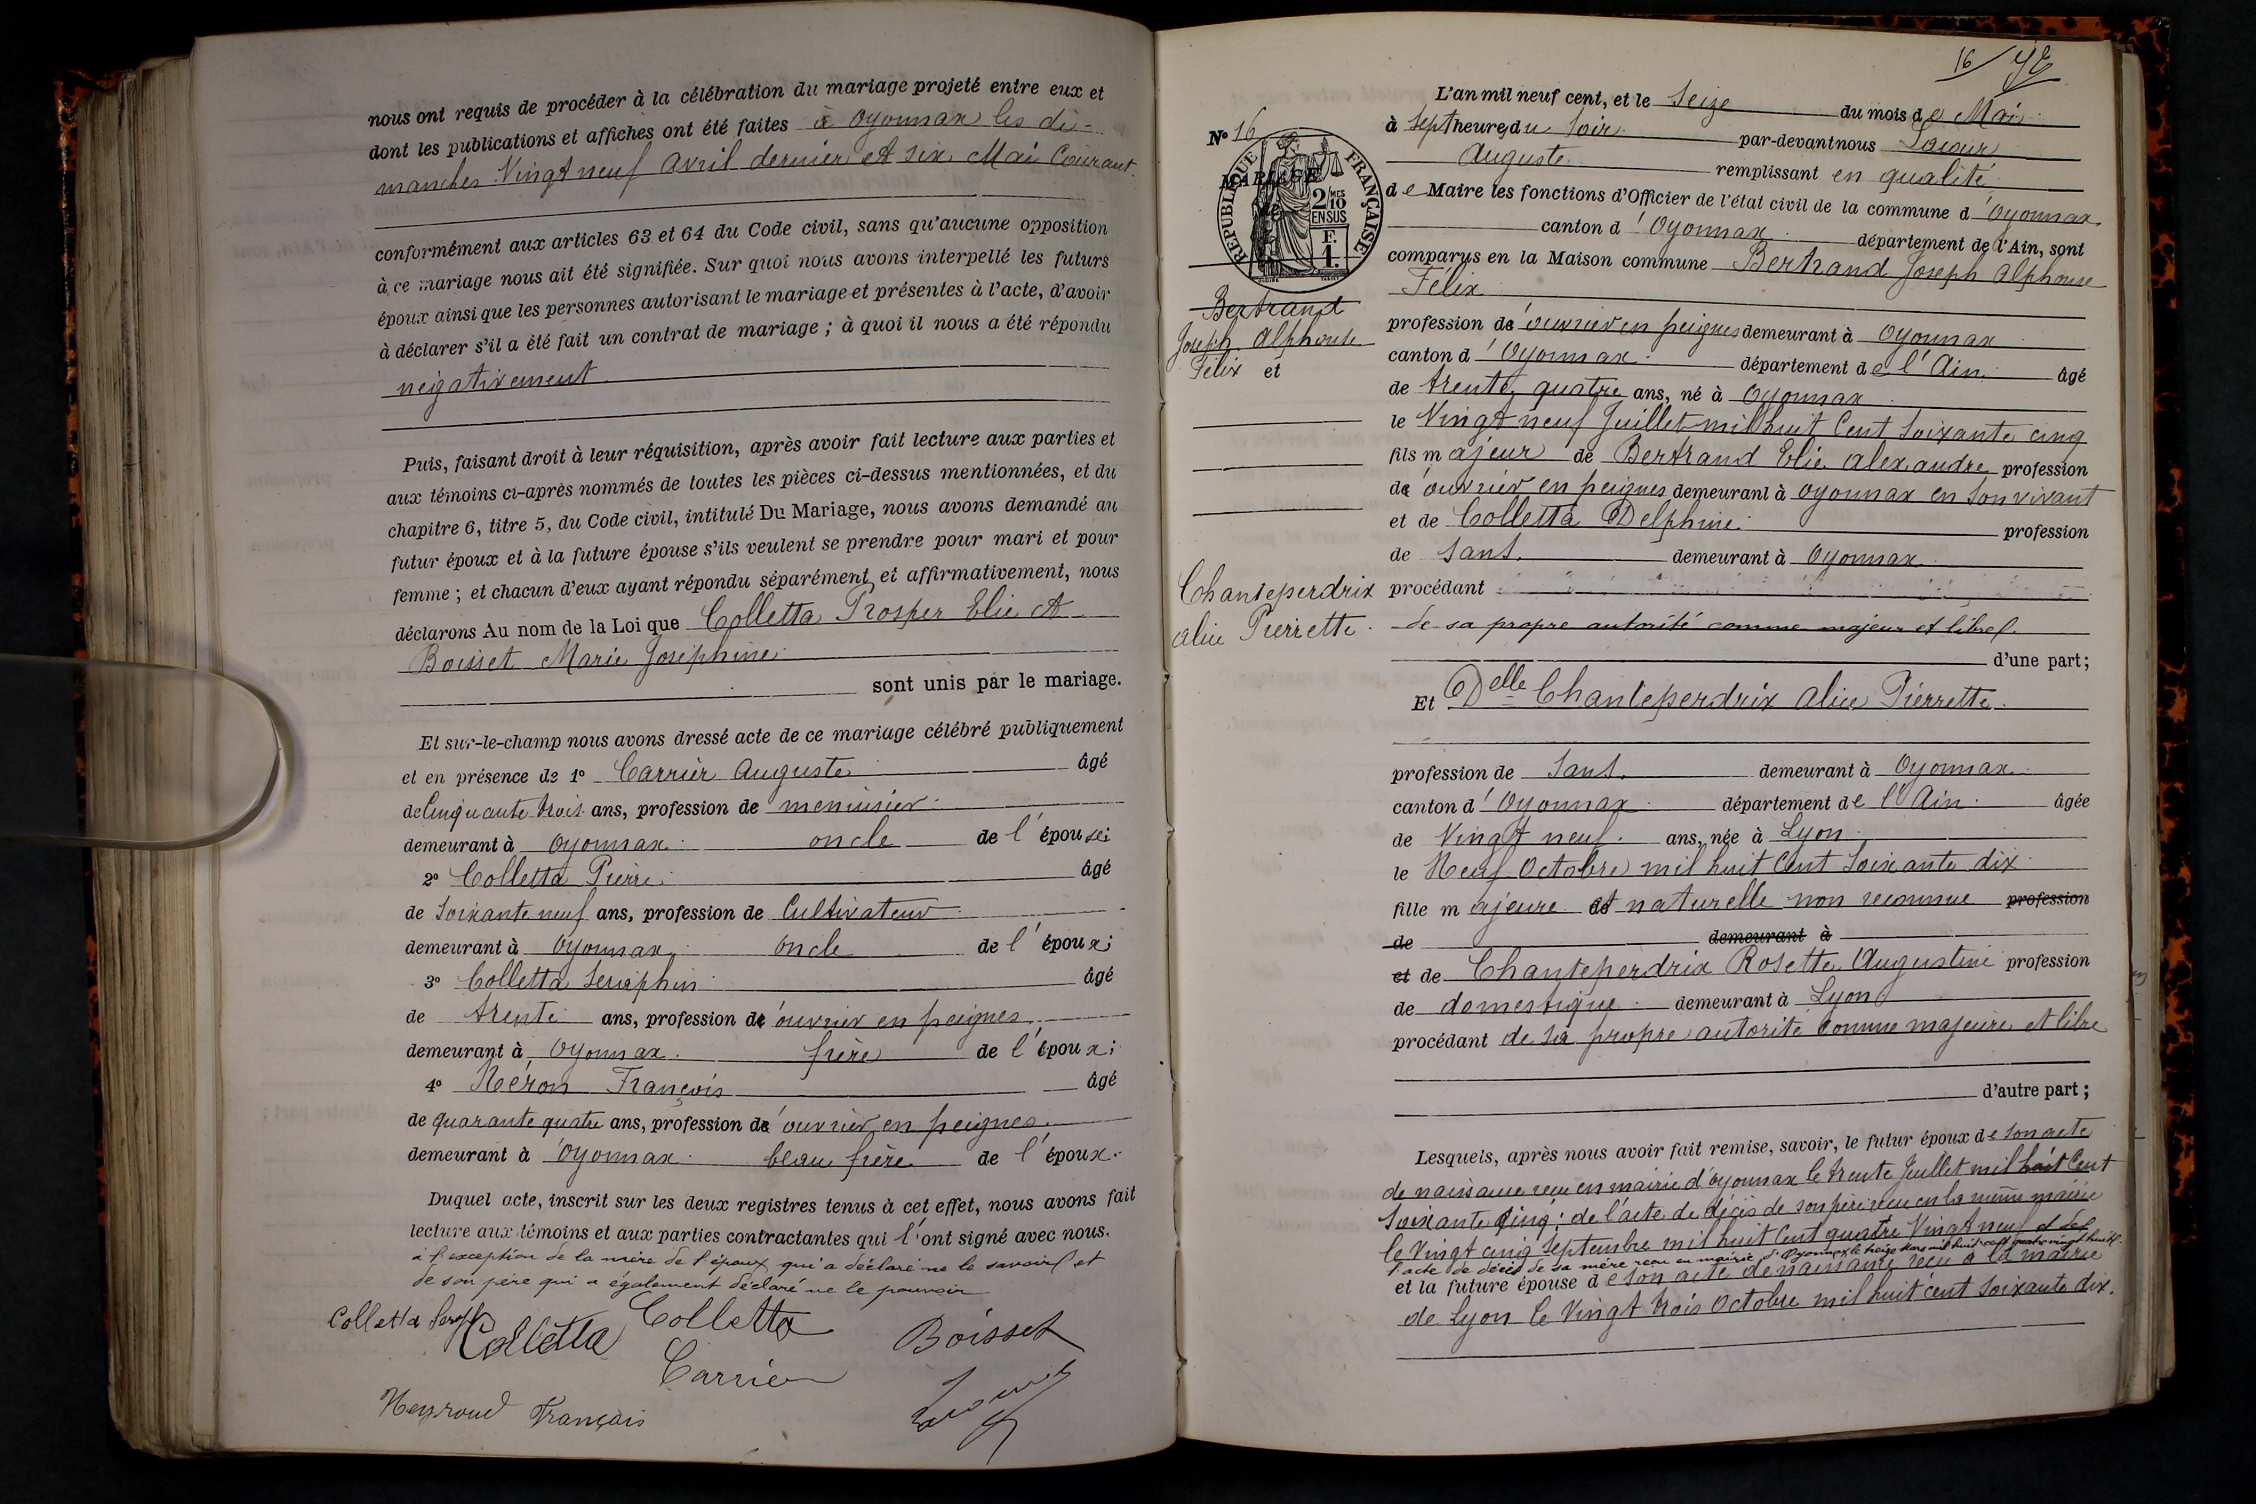 nous ont requis de procéder à la célébration du mariage projeté entre eux et
dont les publications et affiches ont été faites à Oyonnax les di-
manches Vingt neuf avril dernier et six Mai Courant.
conformément aux articles 63 et 64 du Code civil, sans qu'aucune opposition
à ce mariage nous ait été signifiée. Sur quoi nous avons interpellé les futurs
époux ainsi que les personnes autorisant le mariage et présentes à l'acte, d'avoir
à déclarer s'il a été fait un contrat de mariage ; à quoi il nous a été répondu
négativement
Puis, faisant droit à leur réquisition, après avoir fait lecture aux parties et
aux témoins ci-après nommés de toutes les pièces ci-dessus mentionnées, et du
chapitre 6, titre 5, du Code civil, intitulé Du Mariage, nous avons demandé au
futur époux et à la future épouse s'ils veulent se prendre pour mari et pour
femme ; et chacun d'eux ayant répondu séparément et affirmativement, nous
déclarons Au nom de la Loi que Colletta Prosper Elie et
Boisset Marie Joséphine
sont unis par le mariage.
Et sur-le-champ nous avons dressé acte de ce mariage célébré publiquement
et en présence de 1° Carrier Auguste âgé
de Cinquante trois ans, profession de menuisier
demeurant à Oyonnax oncle de l'épouse;
2° Colletta Pierre âgé
de Soixante neuf ans, profession de Cultivateur
demeurant à Oyonnax oncle de l'époux;
3° Colletta Seraphin âgé
de trente ans, profession d'ouvrier en peignes
demeurant à Oyonnax frère de l'époux;
4° Néron François âgé
de quarante quatre ans, profession d'ouvrier en peignes
demeurant à Oyonnax beau frère de l'époux.
Duquel acte, inscrit sur les deux registres tenus à cet effet, nous avons fait
lecture aux témoins et aux parties contractantes qui l'ont signé avec nous.
à l'exception de la mère de l'époux qui a déclaré ne le savoir et
de son père qui a également déclaré ne le pouvoir
Colletta Seraph
Colletta
Colletta
Boisset
Carrier
Neyroud François
16 
N° 16
MARIAGE
de
REPUBLIQUE FRANÇAISE
2/10 MES
EN SUS
F.
1.
Bertrand
Joseph Alphonse
Félix et
Chanteperdrix
Alice Pierrette
L'an mil neuf cent, et le Seize du mois de Mai
à sept heures du soir par-devant nous
Auguste remplissant en qualité
de Maire les fonctions d'Officier de l'état civil de la commune d'Oyonnax
canton d'Oyonnax département de l'Ain, sont
comparus en la Maison commune Bertrand Joseph Alphonse
Félix
profession d'ouvrier en peignes demeurant à Oyonnax
canton d'Oyonnax département de l'Ain âgé
de trente quatre ans, né à Oyonnax
le Vingt neuf Juillet mil huit Cent Soixante cinq
fils majeur de Bertrand Elie Alexandre profession
d'ouvrier en peignes demeurant à Oyonnax en son vivant
et de Colletta Delphine profession
de sans demeurant à Oyonnax
procédant
de sa propre autorité comme majeur et libre
d'une part;
Et Delle Chanteperdrix Alice Pierrette
profession de Sans demeurant à Oyonnax
canton d'Oyonnax département de l'Ain âgée
de Vingt neuf ans, née à Lyon
le Neuf Octobre mil huit Cent Soixante dix
fille majeure et naturelle non reconnue profession
de demeurant à
et de Chanteperdrix Rosette Augustine profession
de domestique demeurant à Lyon
procédant de sa propre autorité comme majeure et libre
d'autre part ;
Lesquels, après nous avoir fait remise, savoir, le futur époux de son acte
de naissance reçu en mairie d'Oyonnax le trente Juillet mil huit Cent
Soixante cinq; de l'acte de décès de son père reçu en la même mairie
le Vingt cinq Septembre mil huit Cent quatre Vingt neuf et de
l'acte de décès de sa mère reçu en mairie d'Oyonnax le treize mars mil huit cent quatre vingt huit
et la future épouse de son acte de naissance reçu à la mairie
de Lyon le Vingt trois Octobre mil huit cent soixante dix.